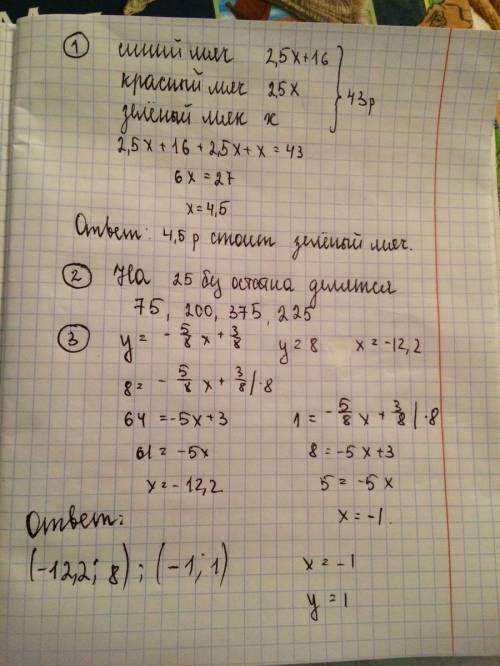 ① синий мяч 2,5x+16
красный мяч 25x } 43р
зелёный мяк x
2,5x+16+2,5x+x=43
6x=27
x=4,5
Ответ: 4,5 р стоит зелёный мяч.
② На 25 бу остатка делятся
75, 200, 375, 225
③ y= -5/8 x + 3/8 y=8 x=-12,2
8= -5/8 x + 3/8 |·8
64=-5x+3 1= -5/8 x + 3/8 |·8
61=-5x 8=-5x+3
x=-12,2 5=-5x
Ответ: x=-1.
(-12,2; 8); (-1; 1) x=-1
y=1